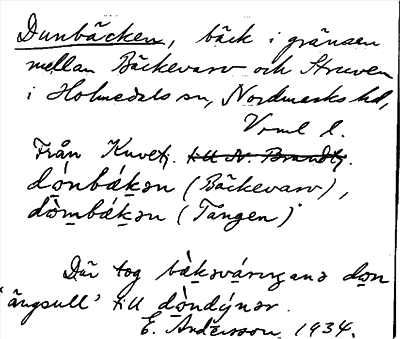 Dunbäcken, bäck i gränsen
mellan Bäckevarv och Struven
i Holmedals sn, Nordmarks hd,
Vrml l.
Från Kuvetj. till N. Brandtj.
dónbǽkən (Bäckevarv),
dòmbǽkən (Tangen)
Där tog bæ̀kəvárvgana don
'ängsull' till dòndýnər.
E. Andersson 1934.